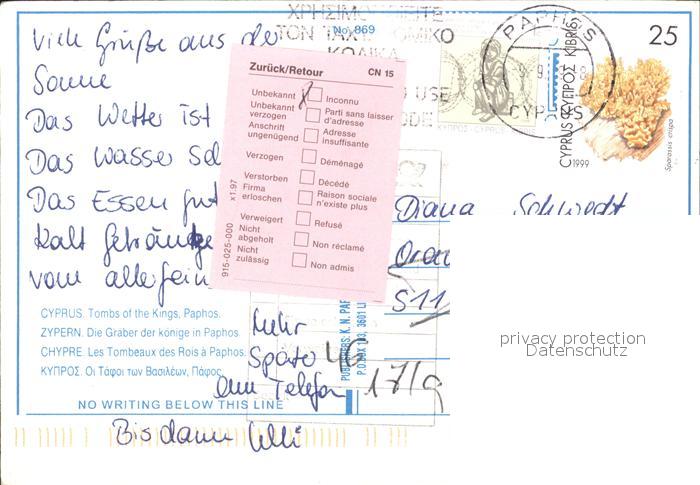 ΧΡΗΣΙΜΟΠΟΙΕΙΤΕ
ΤΟΝ ΤΑΧ ΜΙΚΟ
ΚΩΔΙΚΑ
No. 869
USE
ODE
PAPHOS
CYPRUS
ΚΥΠΡΟΣ - CYPRUS
25
CYPRUS ΚΥΠΡΟΣ KIBRIS
1999
Sparassis crispa
Viele Grüße aus der
Sonne
Das Wetter ist
Das Wasser
Das Essen gut
Kalt Getränke
vom allerfein
Zurück/Retour CN 15
Unbekannt Inconnu
Unbekannt verzogen Parti sans laisser d'adresse
Anschrift ungenügend Adresse insuffisante
Verzogen Déménagé
Verstorben Décédé
Firma erloschen Raison sociale n'existe plus
Verweigert Refusé
Nicht abgeholt Non réclamé
Nicht zulässig Non admis
915-025-000 x1.97
Diana Schwedt
Oran
S11
CYPRUS. Tombs of the Kings, Paphos.
ZYPERN. Die Graber der könige in Paphos.
CHYPRE. Les Tombeaux des Rois à Paphos.
ΚΥΠΡΟΣ. Οι Τάφοι των Βασιλέων, Πάφος.
PUBLISHERS: K. N. PAP
P.O. BOX 133, 3601 LI
Mehr
Später
am Telefon
17/9
NO WRITING BELOW THIS LINE
Bis dann Ulli
privacy protection
Datenschutz